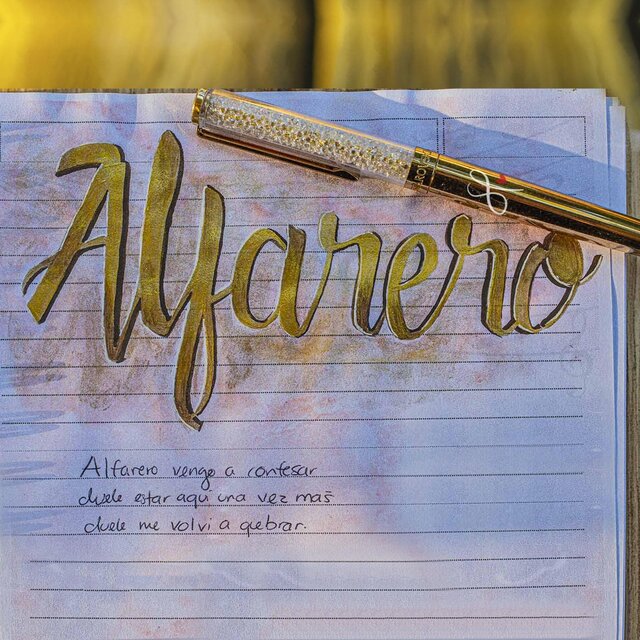 Alfarero
Alfarero vengo a confesar
duele estar aquí una vez mas
duele me volvi a quebrar.